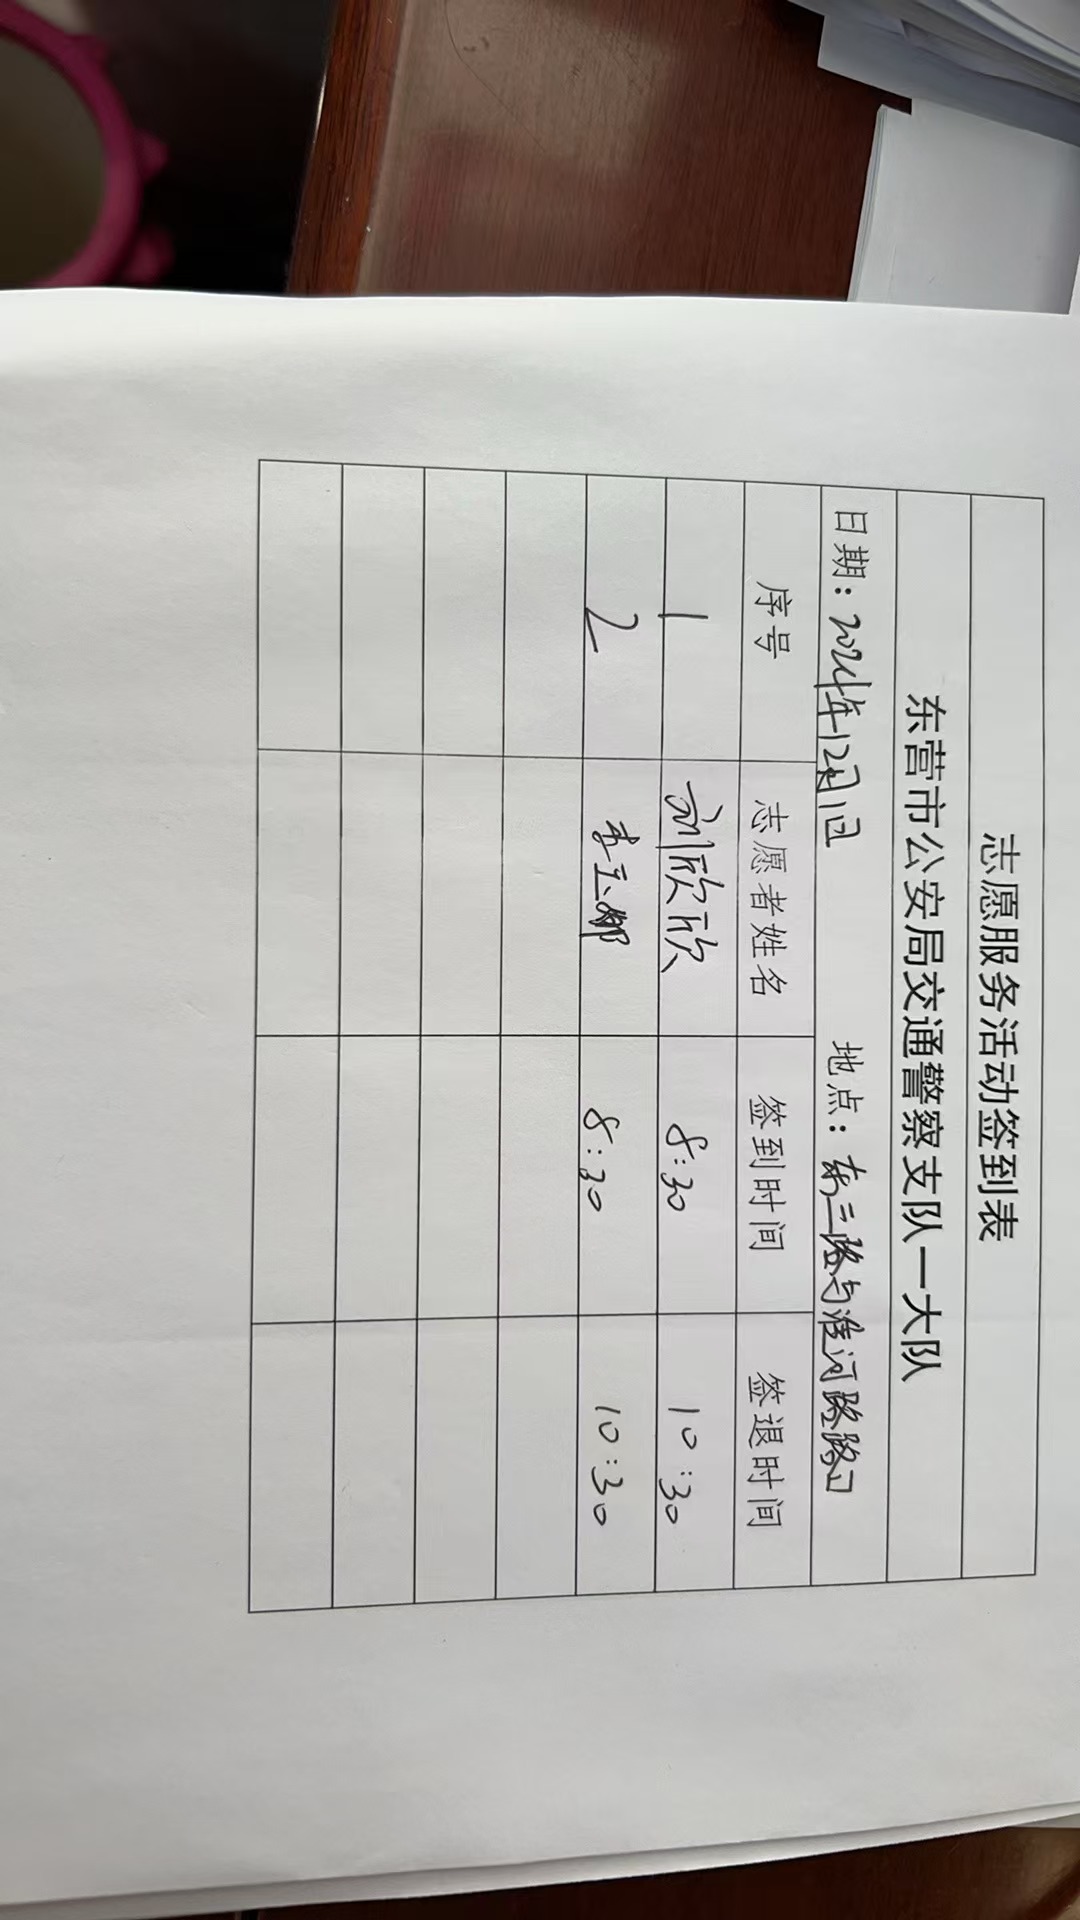 志愿服务活动签到表
东营市公安局交通警察支队一大队
日期：2024年12月1日 地点：东三路与淮河路路口
序号 志愿者姓名 签到时间 签退时间
1 刘欣欣 8:30 10:30
2 李立娜 8:30 10:30